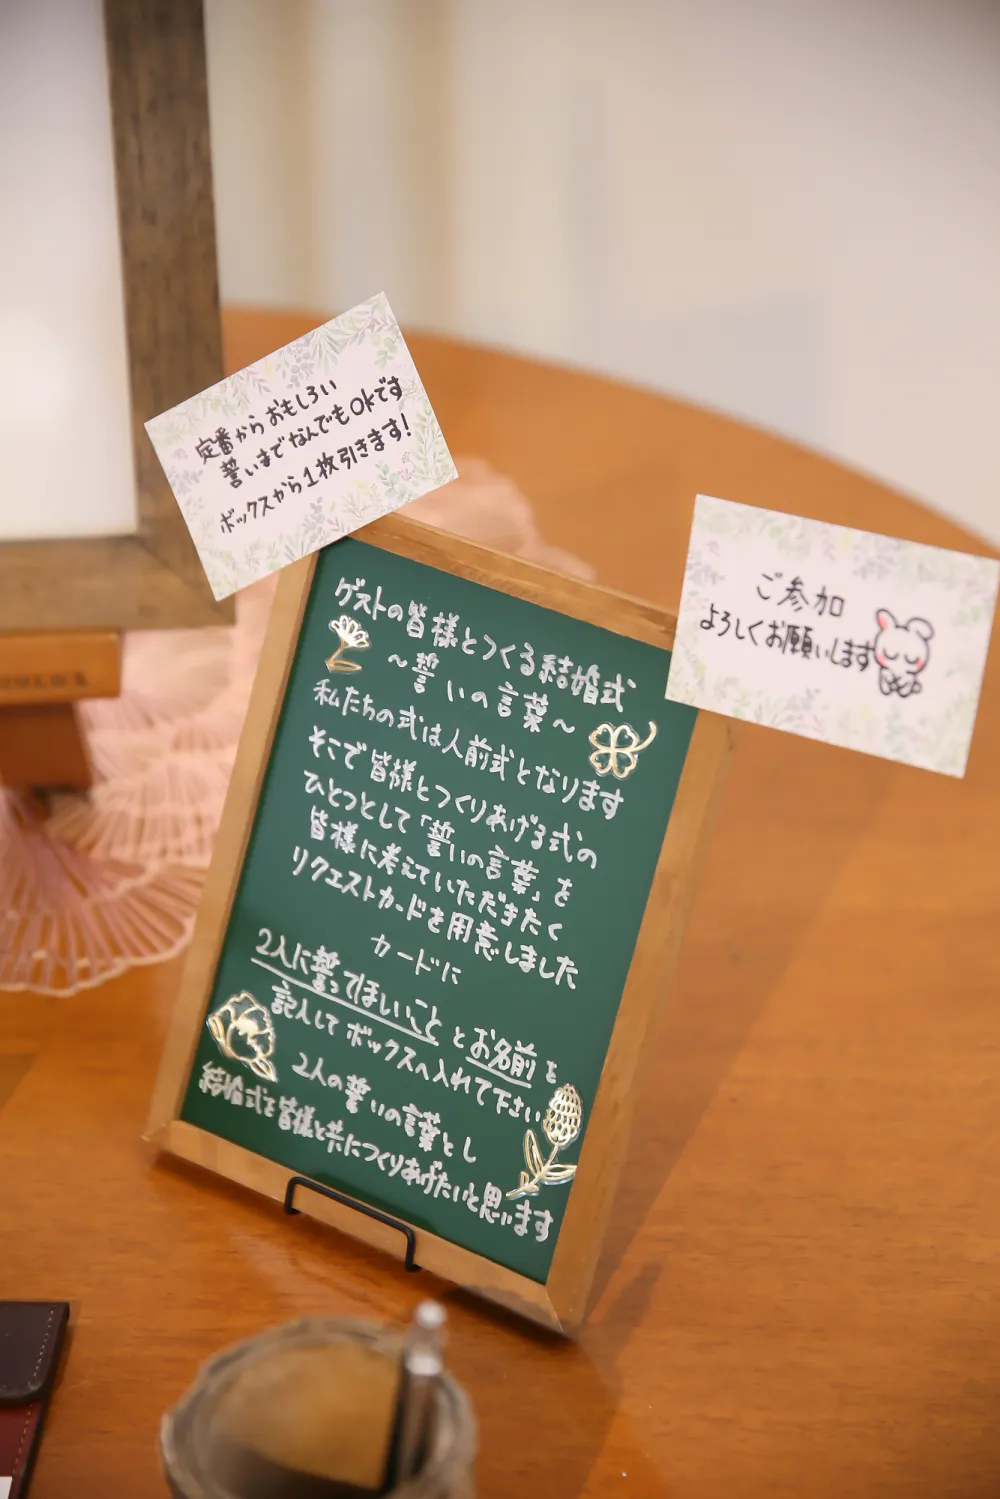 定番からおもしろい
誓いまでなんでもOKです
ボックスから1枚引きます!
ご参加
よろしくお願いします
ゲストの皆様とつくる結婚式
〜誓いの言葉〜
私たちの式は人前式となります
そこで皆様とつくりあげる式の
ひとつとして「誓いの言葉」を
皆様に考えていただきたく
リクエストカードを用意しました
カードに
2人に誓ってほしいこと と お名前 を
記入して ボックスへ入れて下さい
2人の誓いの言葉とし
結婚式を皆様と共につくりあげたいと思います